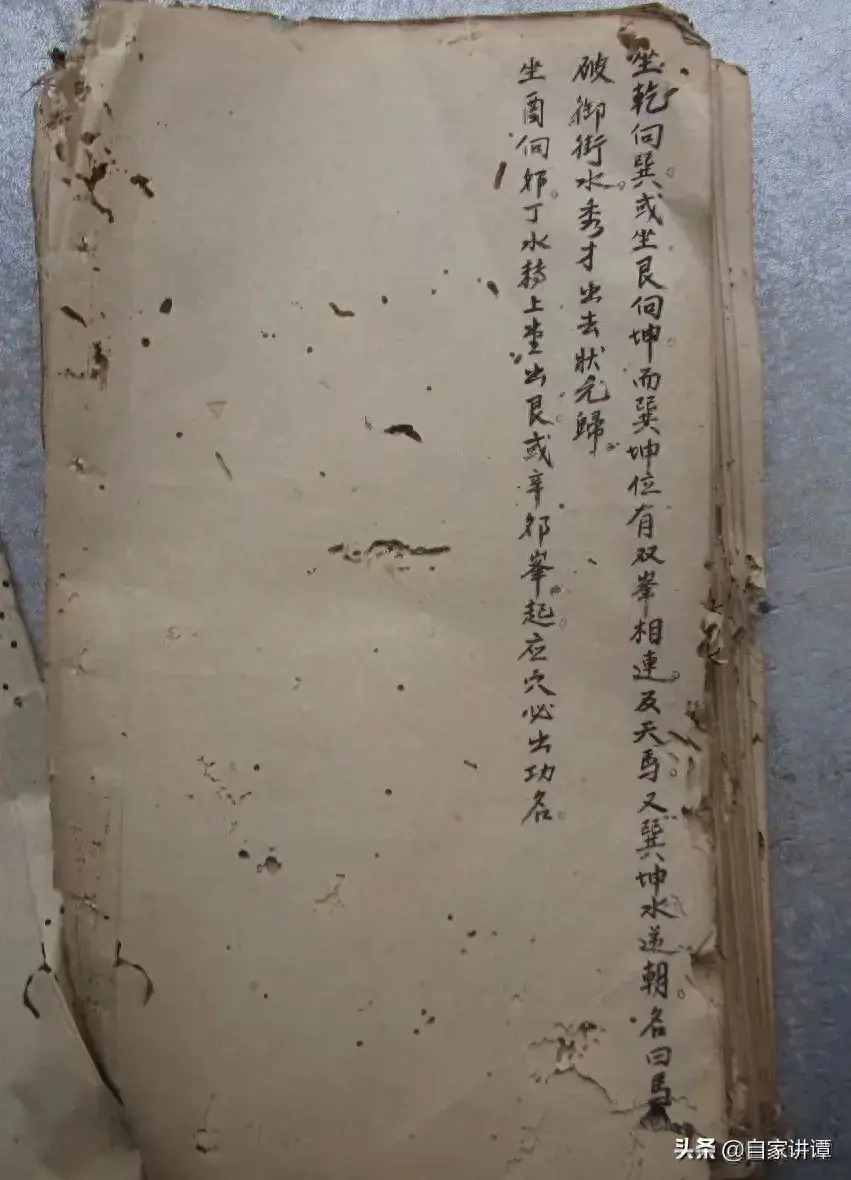 坐乾向巽。或坐艮向坤。而巽坤位有双峯相連。及天馬。又巽坤水逆朝。名曰馬
破御街水。秀才出去狀元歸。
坐酉向卯。丁水轉上堂出艮。或辛卯峯起。应穴必出功名。
头条 @自家讲谭